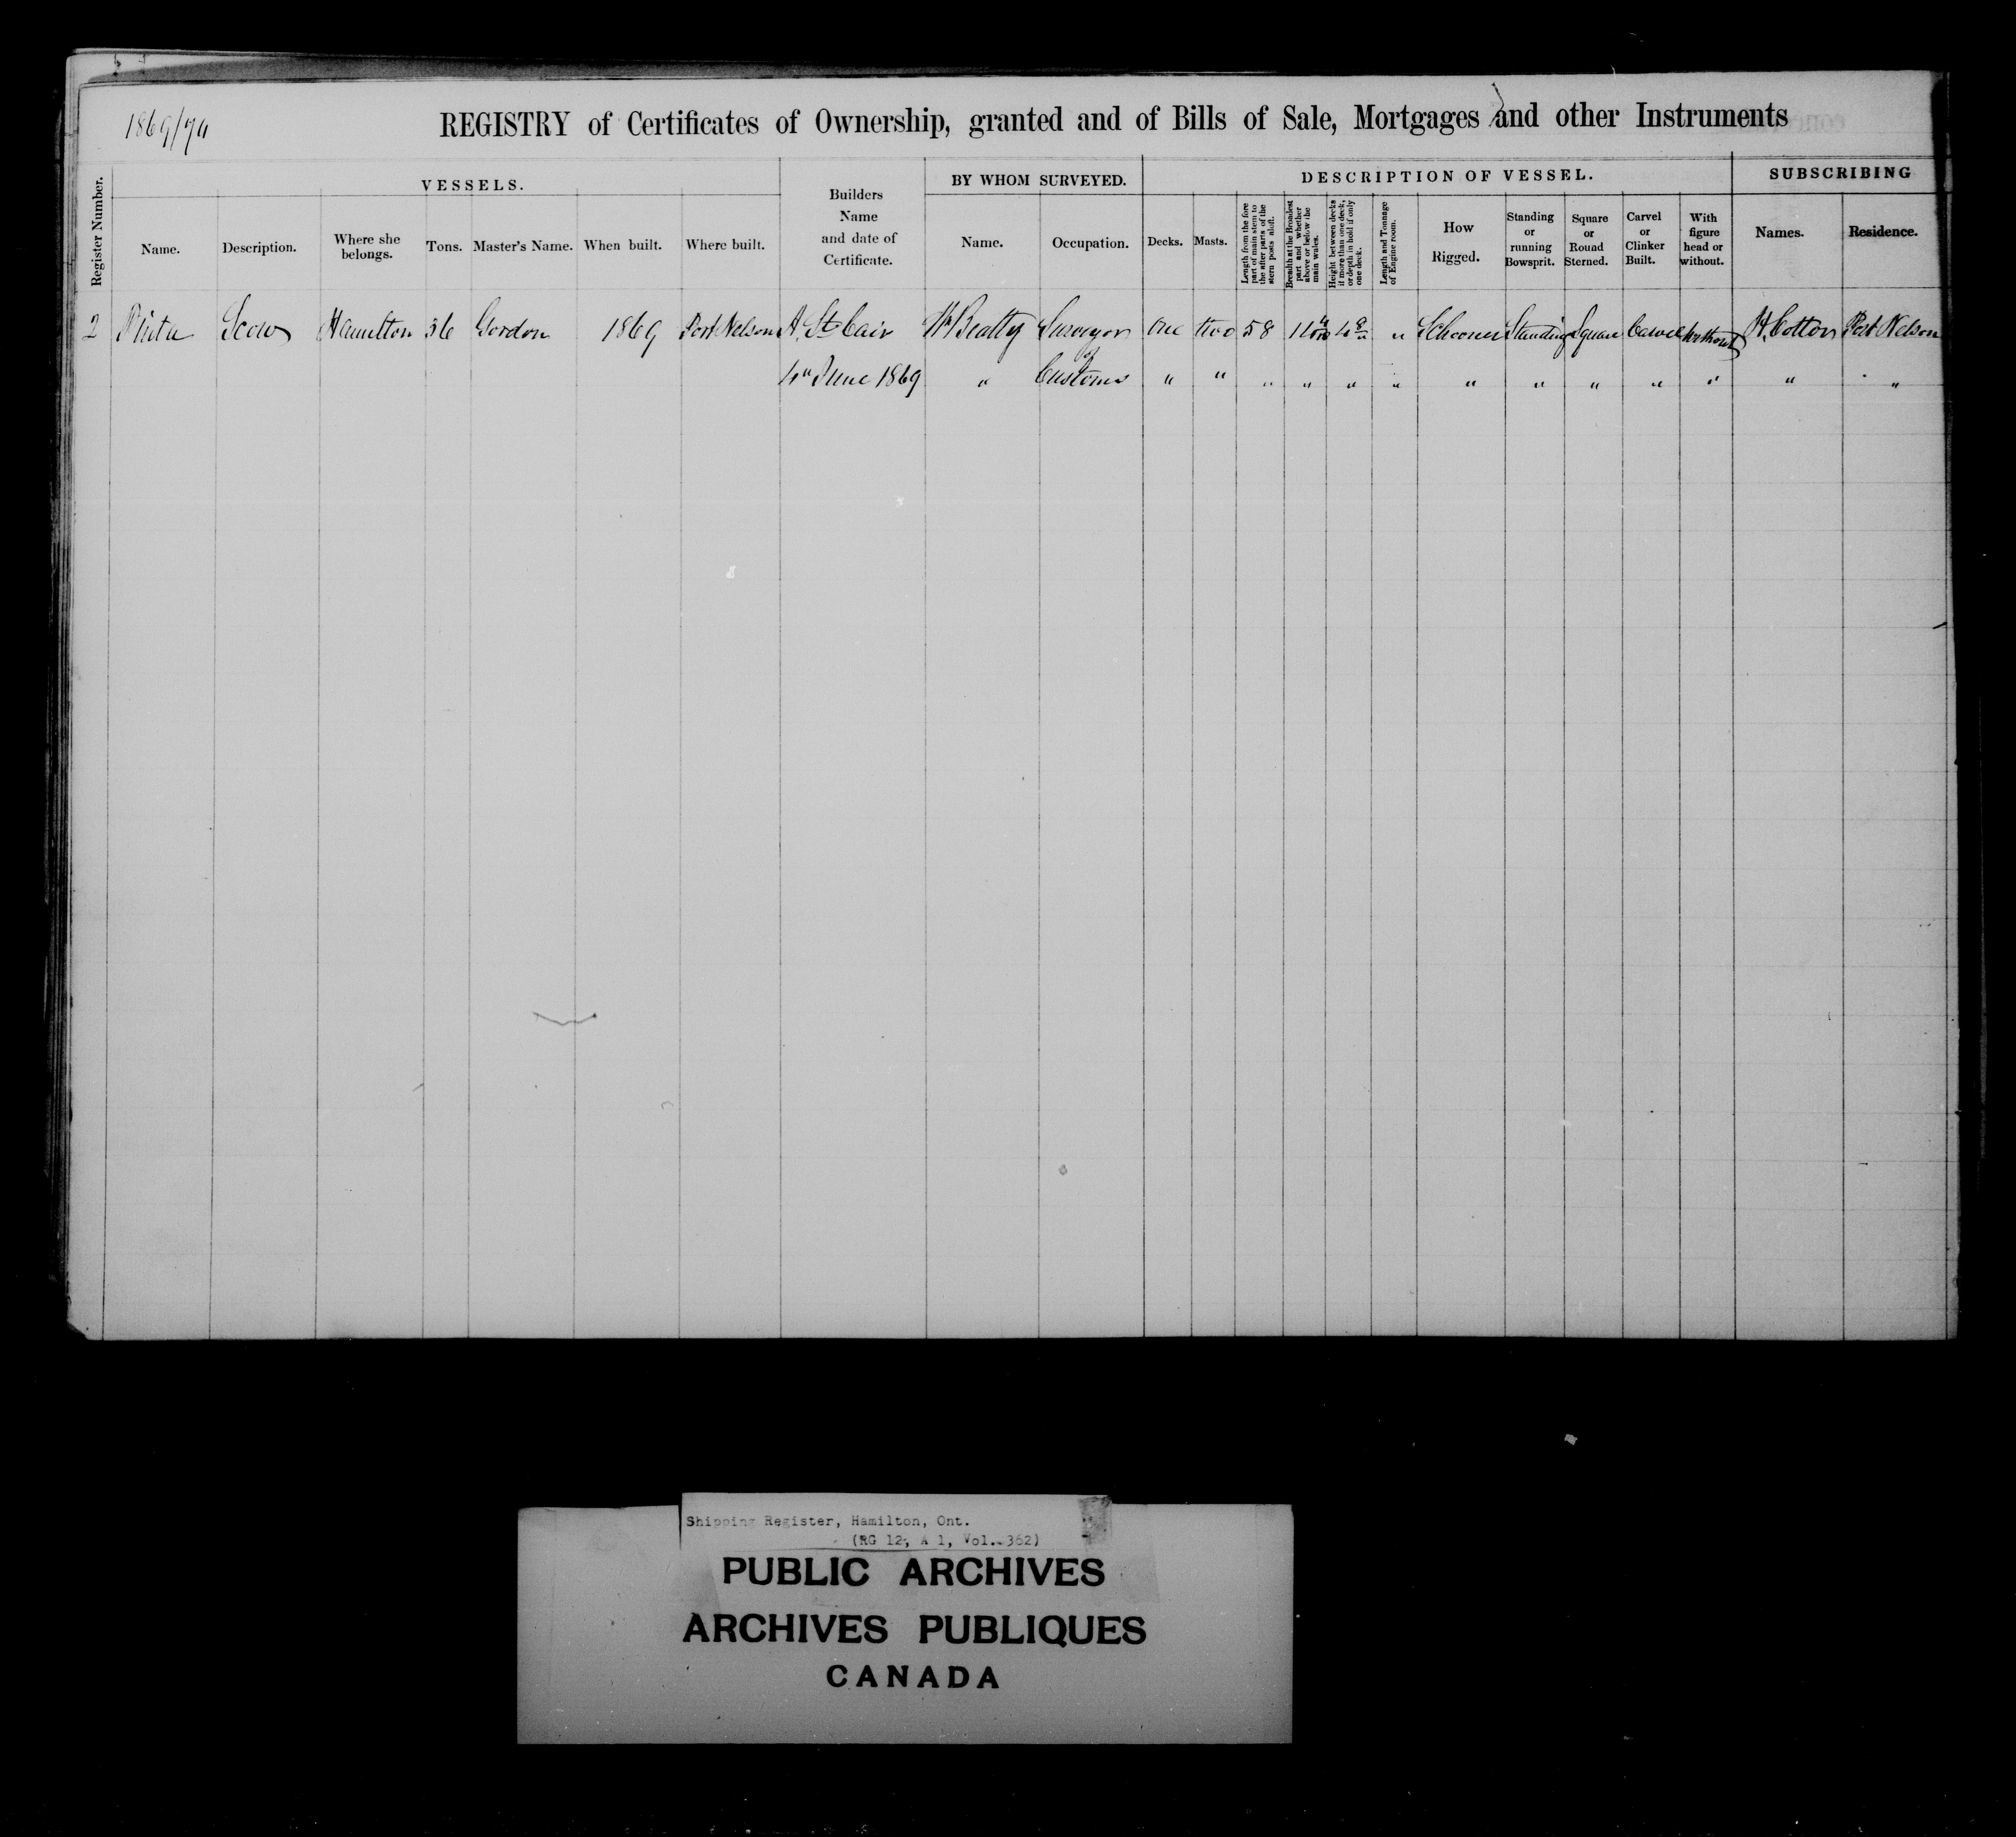 1869/70
REGISTRY of Certificates of Ownership, granted and of Bills of Sale, Mortgages and other Instruments
Register Number.
VESSELS.
Name.
Description.
Where she belongs.
Tons.
Master's Name.
When built.
Where built.
Builders Name and date of Certificate.
BY WHOM SURVEYED.
Name.
Occupation.
DESCRIPTION OF VESSEL.
Decks.
Masts.
Length from the fore part of main stem to the after parts of the stern posts aloft.
Breadth at the Broadest part and whether above or below the main wales.
Height between decks if more than one deck, or depth in hold if only one deck.
Length and Tonnage of Engine room.
How Rigged.
Standing or running Bowsprit.
Square or Round Sterned.
Carvel or Clinker Built.
With figure head or without.
SUBSCRIBING
Names.
Residence.
2 Pinta Scow Hamilton 36 Gordon 1869 Port Nelson A. St Clair Wm Beatty Surveyor One two 58 " Schooner Standing Square Carvel Without H. Cotton Port Nelson
of
4" June 1869 " Customs " " " " " " " " " " " " "
Shipping Register, Hamilton, Ont.
(RG 12, A 1, Vol. 362)
PUBLIC ARCHIVES
ARCHIVES PUBLIQUES
CANADA